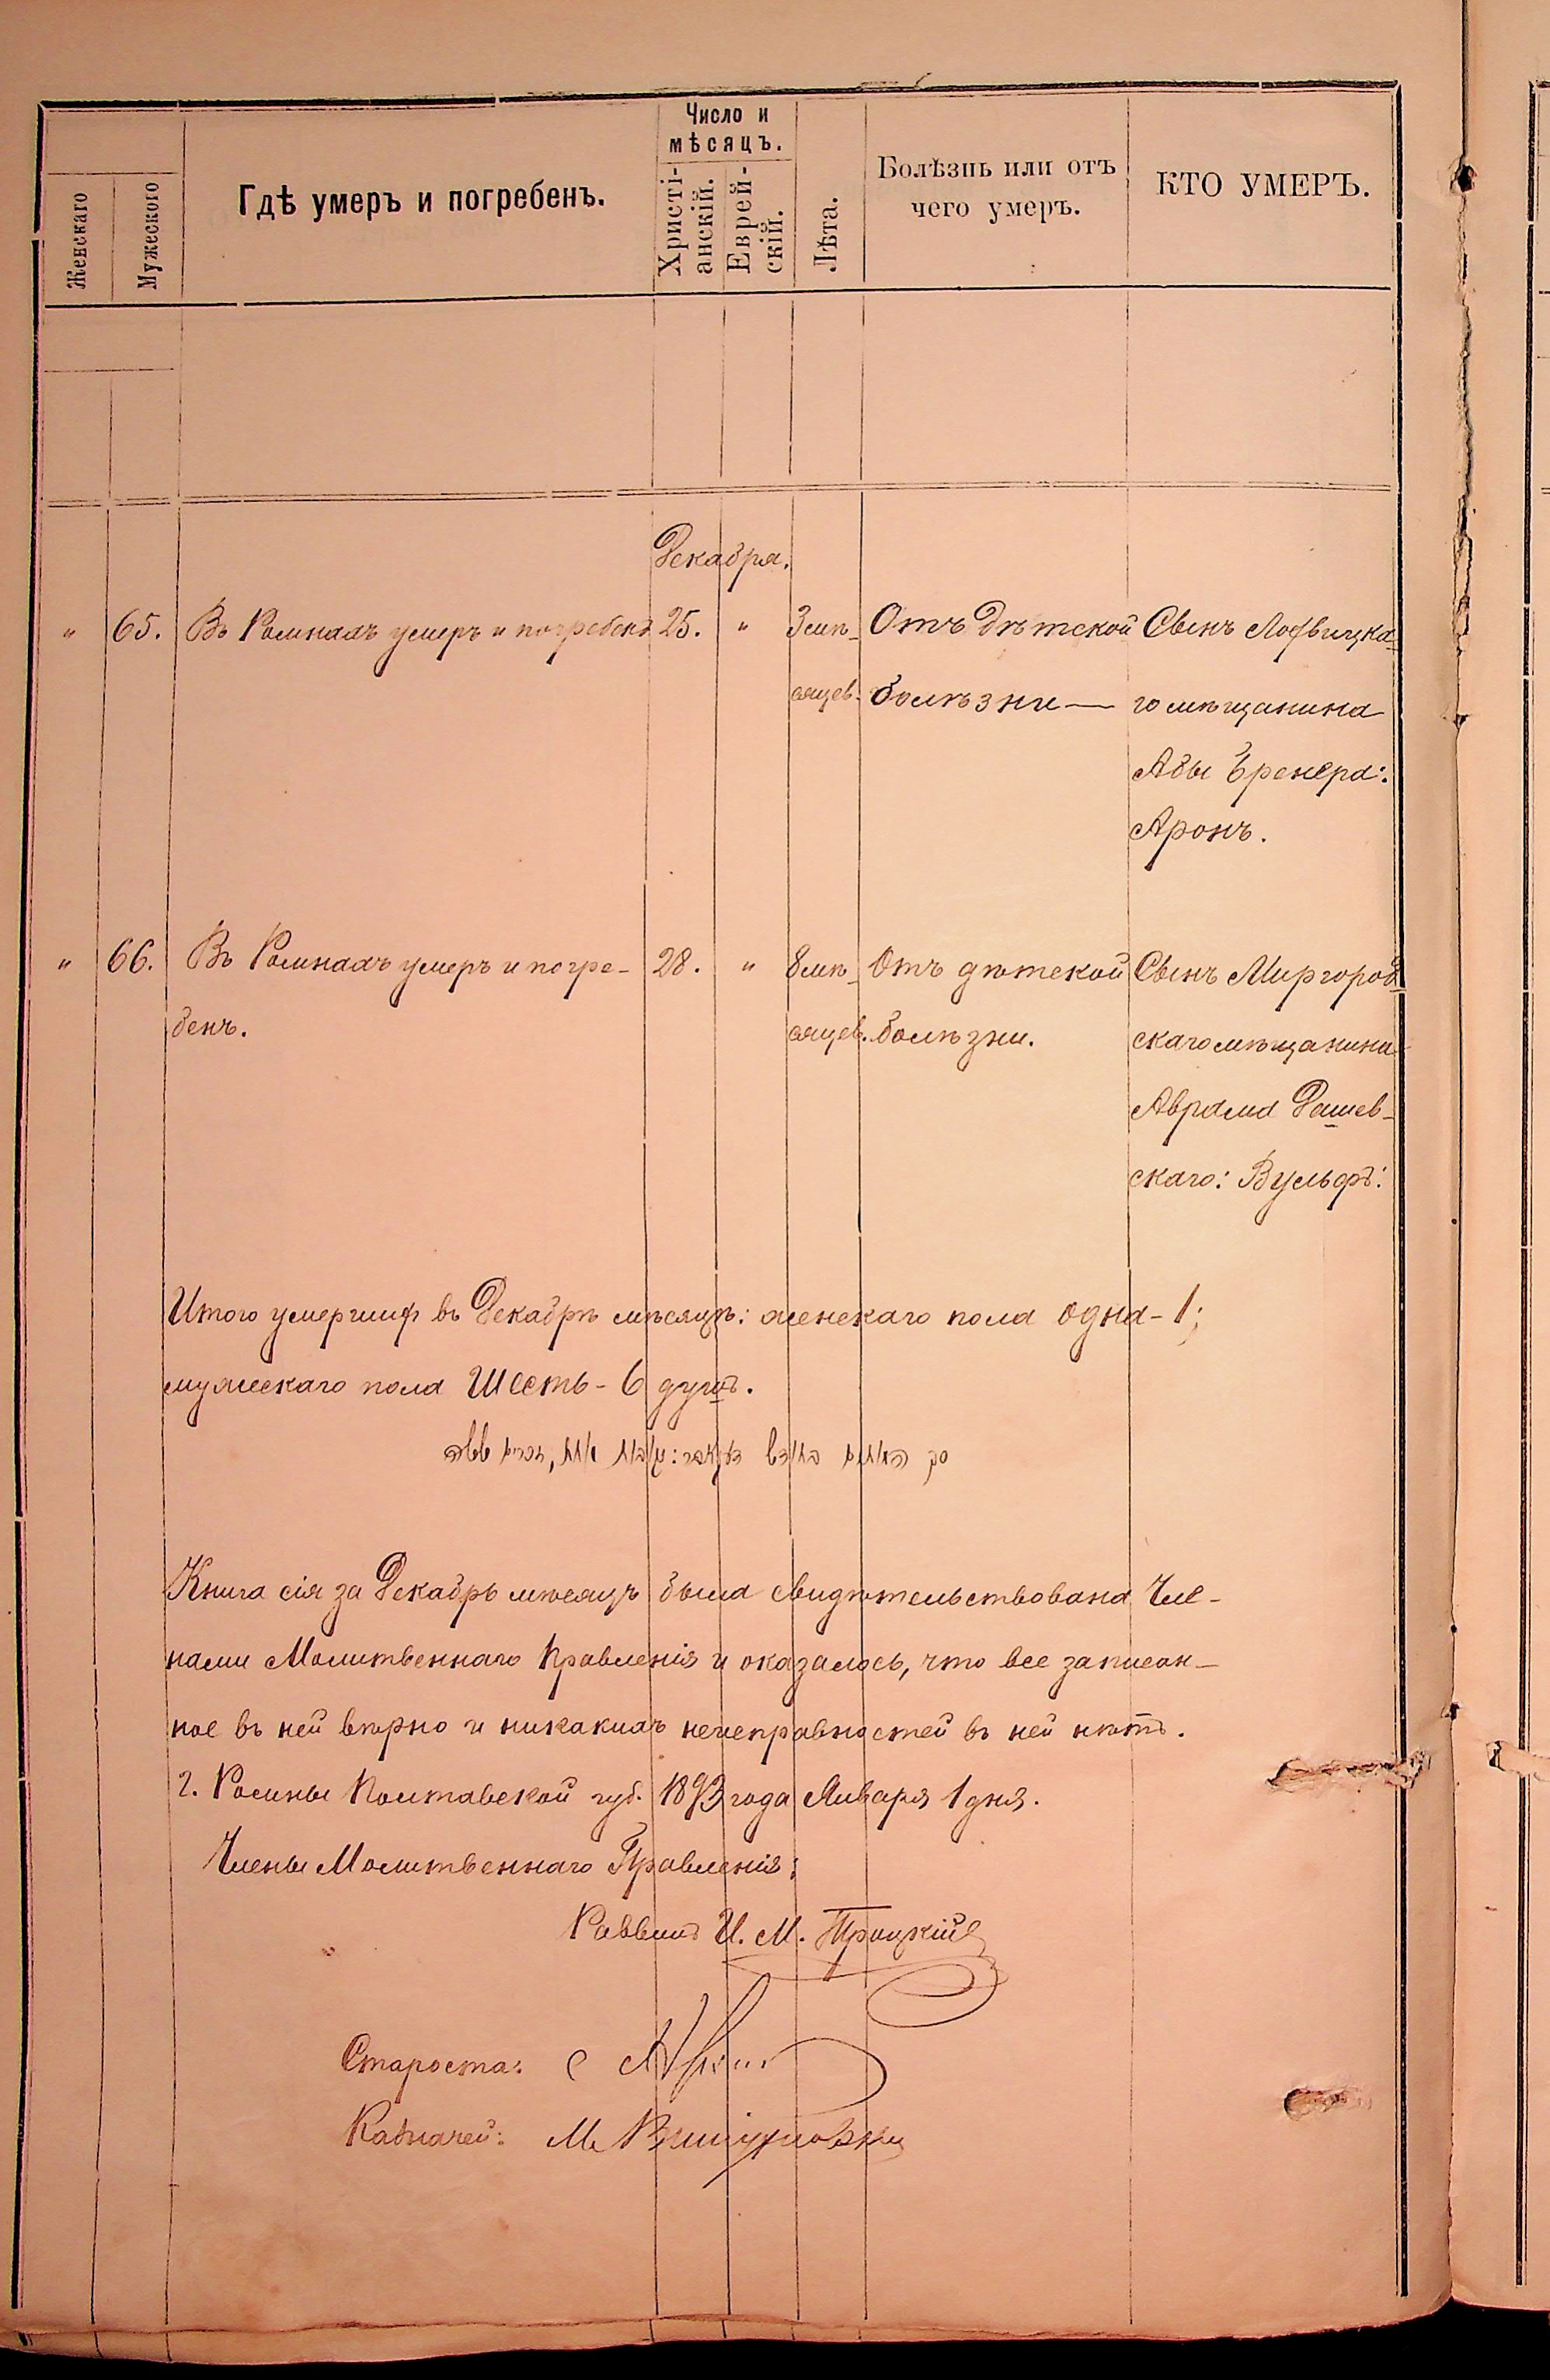 Число и
мѣсяцъ.
Женскаго
Мужеского
Гдѣ умеръ и погребенъ.
Христі-
анскій.
Еврей-
скій.
Лѣта.
Болѣзнь или отъ
чего умеръ.
КТО УМЕРЪ.
Декабря.
" 65. Въ Ромнахъ умеръ и погребенъ 25. " 3 мѣ- Отъ дѣтской Сынъ Лохвицка-
сяцев. болѣзни — го мѣщанина
Абы Бренера:
Аронъ.
" 66. Въ Ромнахъ умеръ и погре- 28. " 8 мѣ- Отъ дѣтской Сынъ Миргород-
бенъ. сяцев. болѣзни. скаго мѣщанина
Аврама Рашев-
скаго: Вульфъ:
Итого умершихъ въ Декабрѣ мѣсяцѣ: женскаго пола одна - 1;
мужескаго пола Шесть - 6 душъ.
Книга сія за Декабрь мѣсяцъ была свидѣтельствована Чле-
нами Молитвеннаго Правленія и оказалось, что все записан-
ное въ ней вѣрно и никакихъ неисправностей въ ней нѣтъ.
г. Ромны Полтавской губ. 1893 года Января 1 дня.
Члены Молитвеннаго Правленія:
Раввинъ И. М. Троцкій
Староста:
Казначей: М